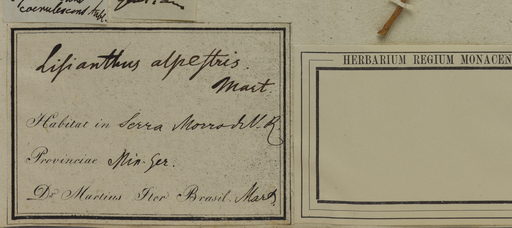 coerulescens Aubl.
Lisianthus alpestris.
Mart.
Habitat in Serra Morro de V. R.
Provinciae Min-Ger.
Dr Martius Iter Brasil. Mart.
HERBARIUM REGIUM MONACEN